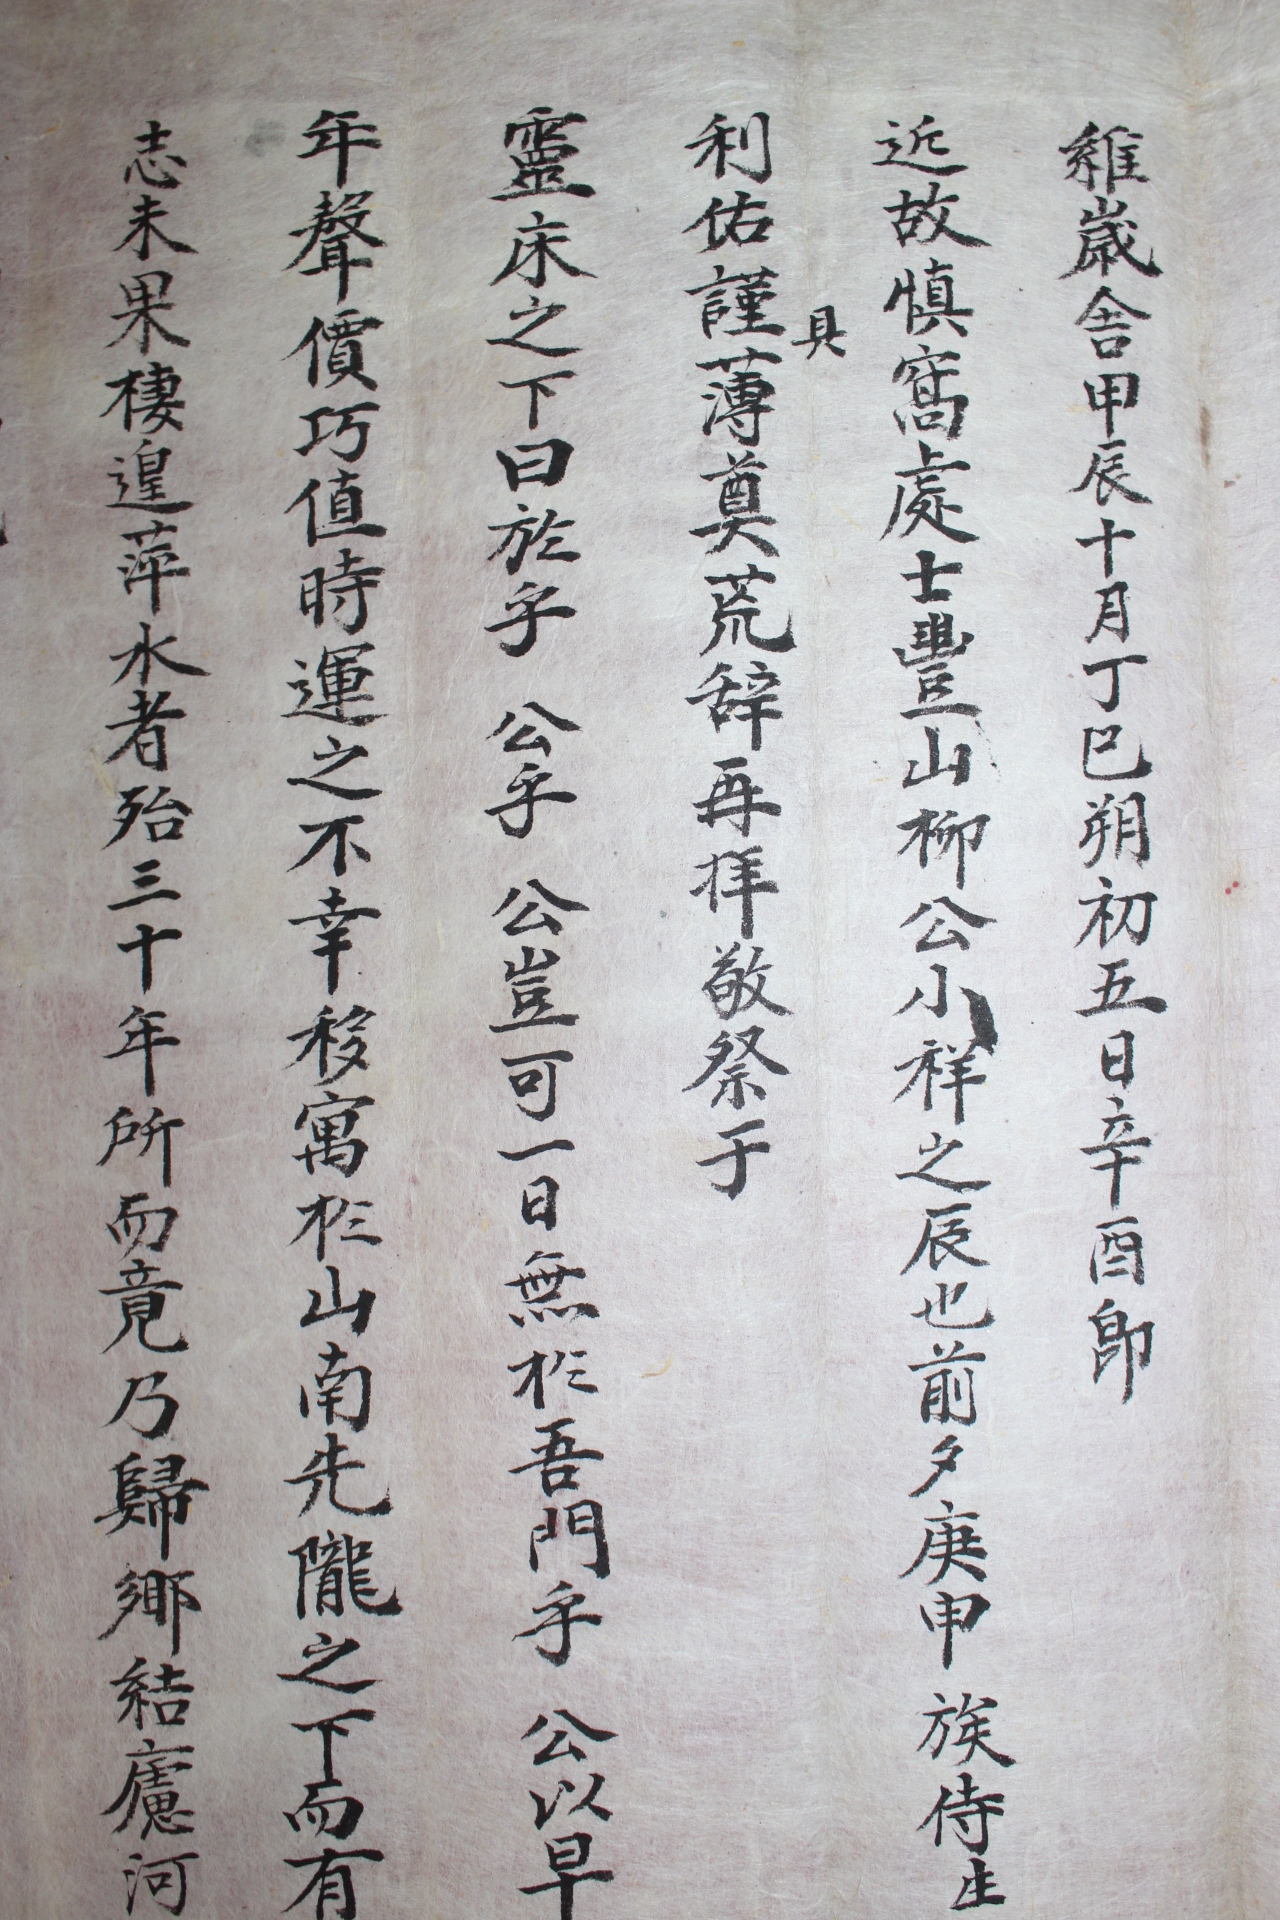 維歲舍甲辰十月丁巳朔初五日辛酉卽
近故愼窩處士豐山柳公小祥之辰也前夕庚申 族侍生
利佑謹具薄奠荒辞再拝敬祭于
靈床之下曰於乎 公乎 公豈可一日無於吾門乎 公以早
年聲價巧值時運之不幸移寓於山南先隴之下而有
志未果棲遑萍水者殆三十年所而竟乃歸鄉結廬河